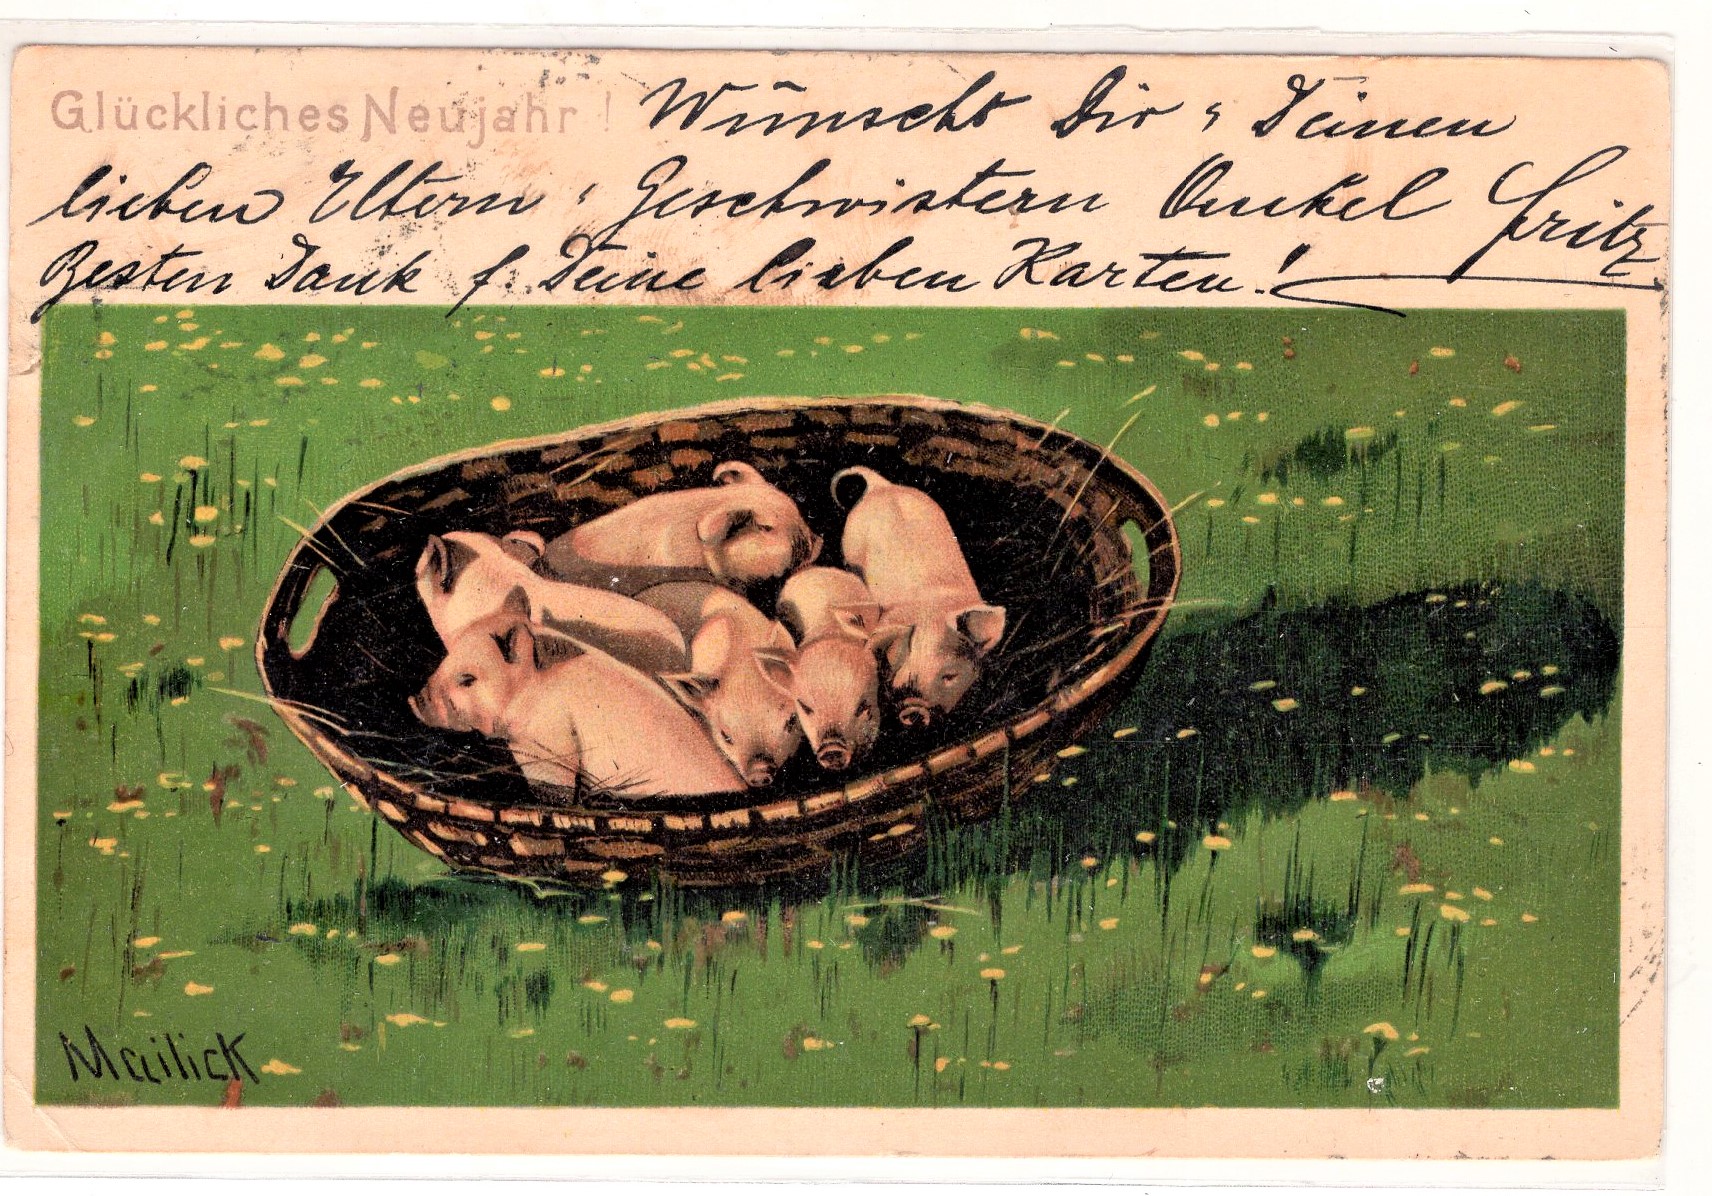 Glückliches Neujahr! Wünscht Dir, Deinen
lieben Eltern, Geschwistern Onkel Fritz
Besten Dank f. Deine lieben Karten!
Mailick